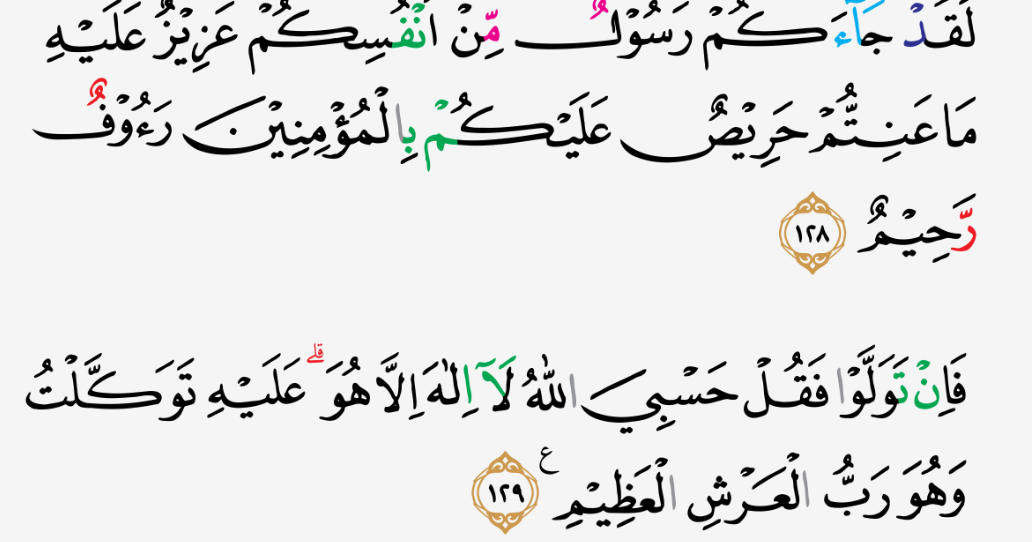 لَقَدْ جَاۤءَكُمْ رَسُوْلٌ مِّنْ اَنْفُسِكُمْ عَزِيْزٌ عَلَيْهِ
مَا عَنِتُّمْ حَرِيْصٌ عَلَيْكُمْ بِالْمُؤْمِنِيْنَ رَءُوْفٌ
رَّحِيْمٌ ١٢٨
فَاِنْ تَوَلَّوْا فَقُلْ حَسْبِيَ اللّٰهُ لَآ اِلٰهَ اِلَّا هُوَ ۗ عَلَيْهِ تَوَكَّلْتُ
وَهُوَ رَبُّ الْعَرْشِ الْعَظِيْمِ ع ١٢٩